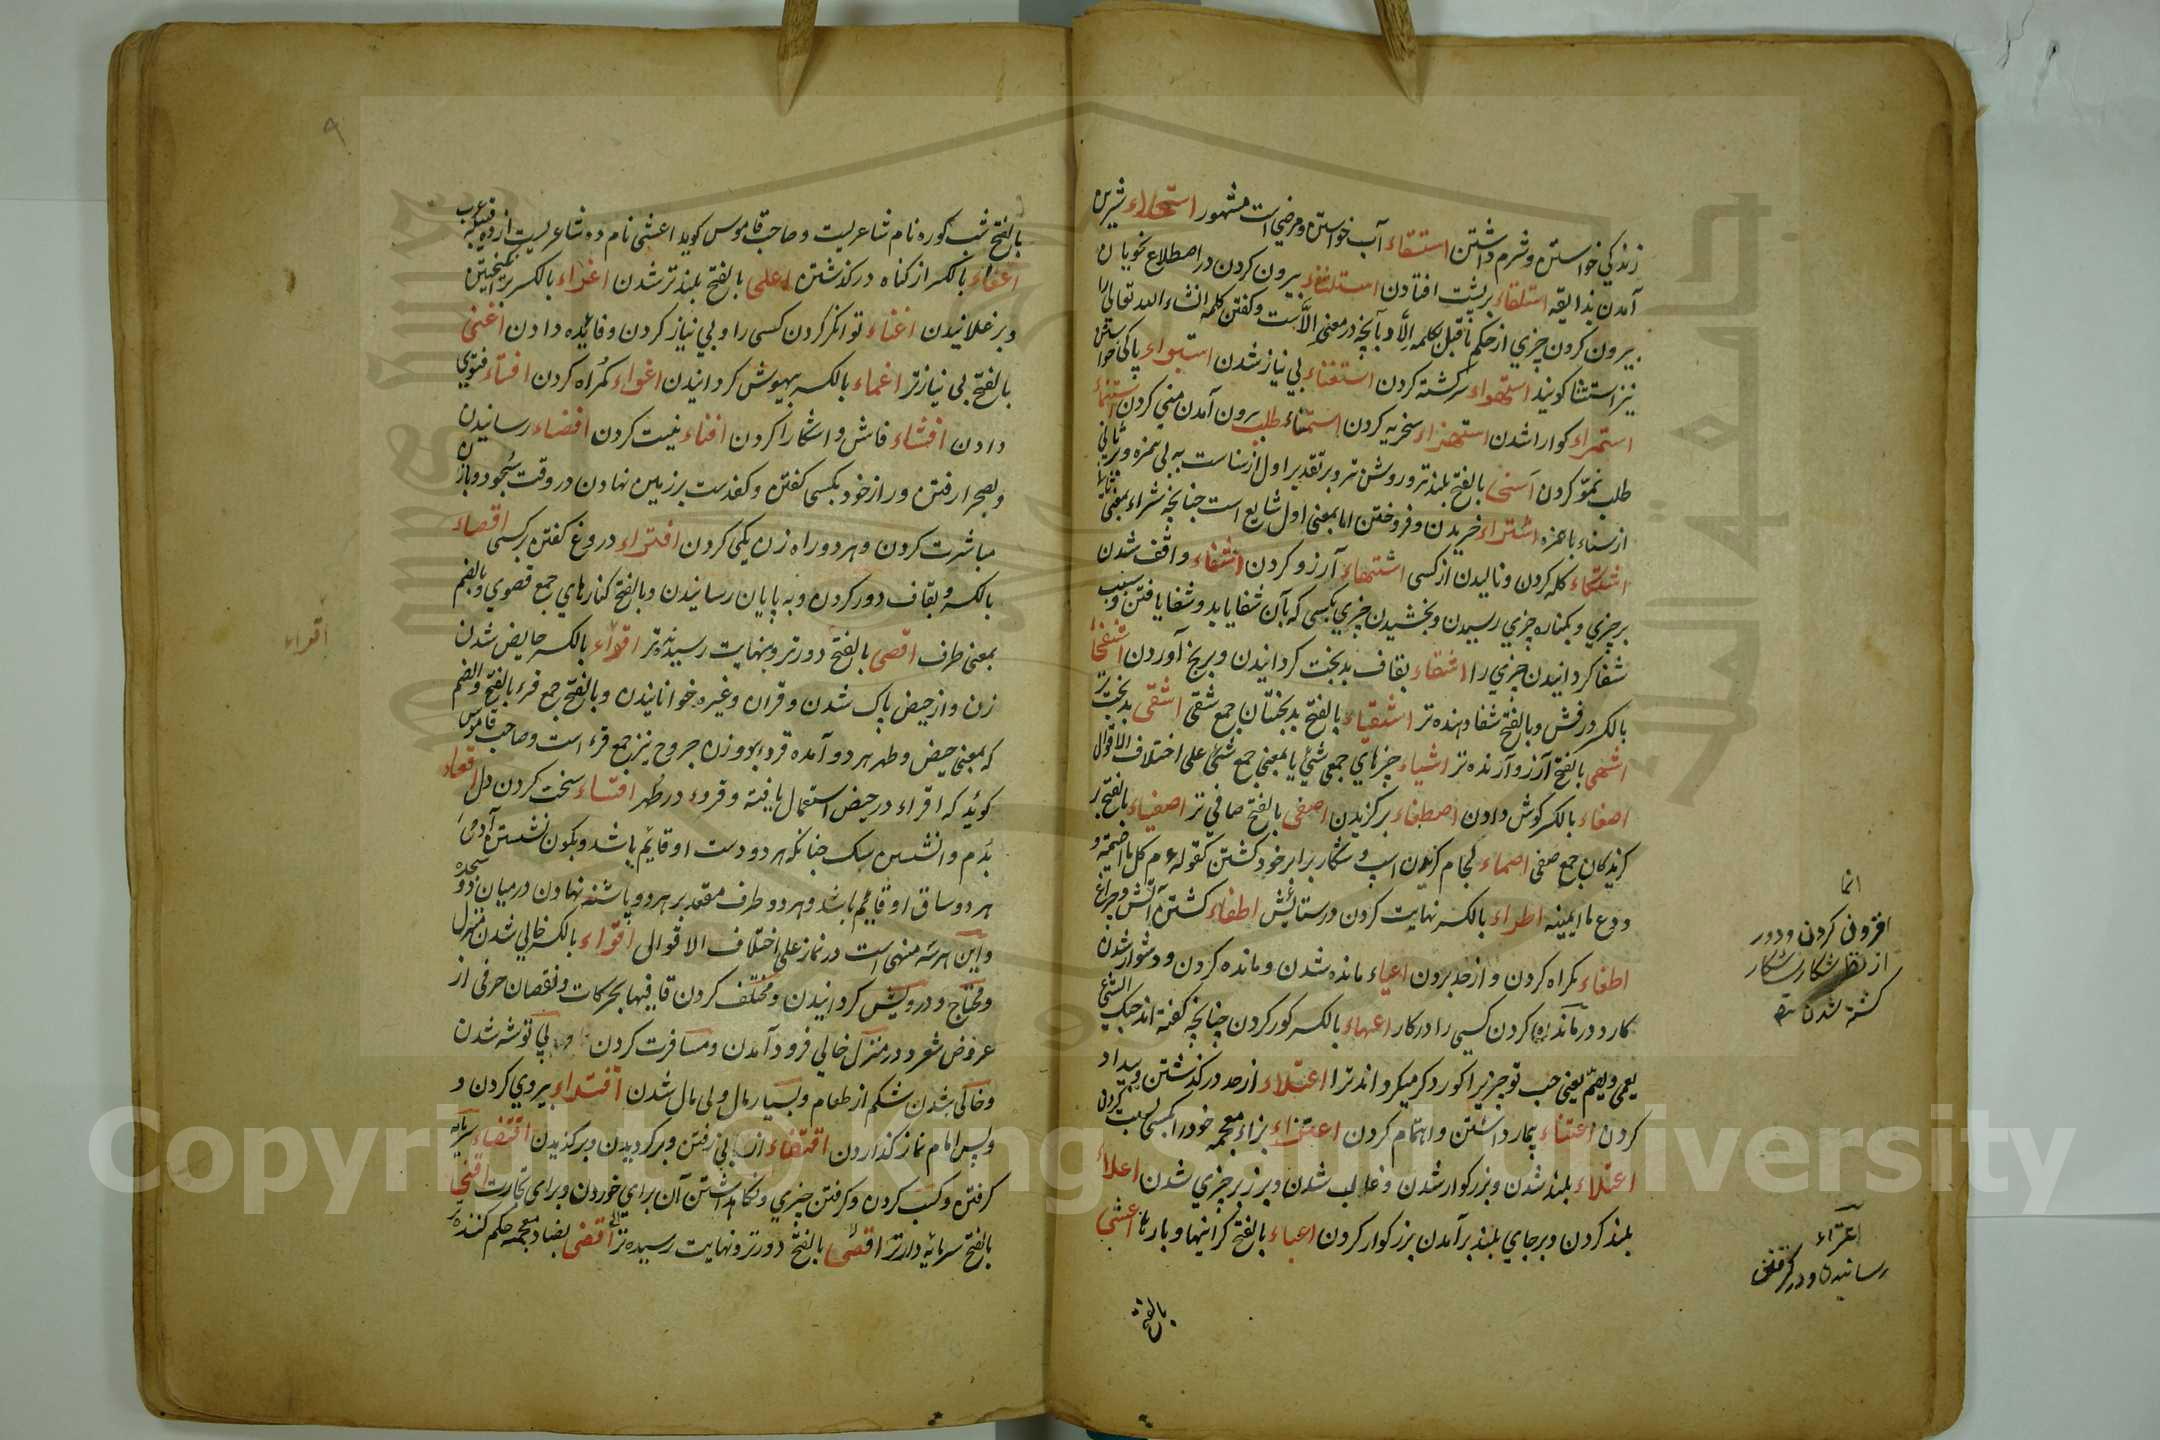 زندگی خواستن و شرم داشتن استسقاء آب خواستن و مرضی است مشهور استحلاء شیرین
آمدن بذایقه استلقاء بر پشت افتادن استثناء بیرون کردن در اصطلاح نحویان
بیرون کردن چیزی از حکم ماقبل بکلمه الّا و آنچه در معنی الّا است و گفتن کلمه انشاء الله تعالی را
نیز استثنا گویند استهواء سرگشته کردن استغناء بی نیاز شدن استبراء پاکی خواستن
استمراء گوارا شدن استهزاء سخریه کردن استمناء طلب بیرون آمدن منی کردن استنماء
طلب نموّ کردن اسنی بالفتح بلندتر و روشن تر و بر تقدیر اول از سناست به بی همزه و بر ثانی
از سناء با همزه اشتراء خریدن و فروختن اما بمعنی اول شایع است چنانچه شراء بمعنی ثانی
اشتکاء گله کردن و نالیدن از کسی اشتهاء آرزو کردن اشفاء واقف شدن
بر چیزی و بکناره چیزی رسیدن و بخشیدن چیزی بکسی که بآن شفا یابد و شفا یافتن و بسبب
شفا گردانیدن چیزی را اشقاء بقاف بدبخت گردانیدن و برنج آوردن اشفی
بالکسر درفش و بالفتح شفا دهنده تر اشقیاء بالفتح بدبختان جمع شقی اشقی بدبخت تر
اشهی بالفتح آرزو آرنده تر اشیاء چیزهای جمع شیٔ یا بمعنی جمع شیٔ علی اختلاف الاقوال
اصغاء بالکسر گوش دادن اصطفاء برگزیدن اصفی بالفتح صافی تر اصفیاء بالفتح بر
گزیدگان جمع صفی اصماء لجام گزیدن اسپ و شکار برابر خود کشتن کقوله ع م کل ما اصمیته و
ودع ما انمیته اطراء بالکسر نهایت کردن در ستایش اطفاء کشتن آتش و چراغ
اطغاء گمراه کردن و از حد بردن اعیاء مانده شدن و مانده کردن و دشوار شدن
کار و درمانده کردن کسی را در کار اعماء بالکسر کور کردن چنانچه گفته اند حبک الشئ
یعمی و یصم یعنی حب تو چیزیرا کور و کر میکرداند ترا اعتداء از حد درگذشتن و بیداد
کردن اعتناء تیمار داشتن و اهتمام کردن اعتزاء بزاء معجمه خود را بکسی نسبت کردن
اعتلاء بلند شدن و بزرگوار شدن و غالب شدن و برزبر چیزی شدن اعلاء
بلند کردن و بر جای بلند برآمدن بزرگوار کردن اعباء بالفتح گرانیها و بارها اعشی
بالفتح
انما
افزونی کردن و دور
از نظر شکار
کشته شدن
اعتراء
رسانیدن و در گرفتن
بالفتح شب کوره نام شاعریست و صاحب قاموس گوید اعشی نام ده شاعریست از ده قبیله عرب
اعفاء بالکسر از گناه درگذشتن اعلی بالفتح بلندتر شدن اغراء بالکسر برانگیختن
و برغلانیدن اغناء توانگر کردن کسی را و بی نیاز کردن و فایده دادن اغنی
بالفتح بی نیازتر اغماء بالکسر بیهوش گردانیدن اغواء گمراه کردن افتاء فتوی
دادن افشاء فاش و اشکارا کردن افناء نیست کردن افضاء رسانیدن
و بصحرا رفتن و راز خود بکسی گفتن و کف دست بر زمین نهادن در وقت سجود و باز
مباشرت کردن و هر دو راه زن یکی کردن افتراء دروغ گفتن بر کسی اقصاء
بالکسر و بقاف دور کردن و به پایان رسانیدن و بالفتح کنارهای جمع قصوی و بالضم
بمعنی طرف اقصی بالفتح دورتر و بنهایت رسیده تر اقراء بالکسر حایض شدن
زن و از حیض پاک شدن و قران و غیره خوانانیدن و بالفتح جمع قرء بالفتح و الضم
که بمعنی حیض و طهر هر دو آمده قروء بر وزن جروح نیز جمع قرء است و صاحب قاموس
گوید که اقراء در حیض استعمال یافته و قروء در طهر اقساء سخت کردن دل اقعاء
بدم وا نشستن سگ چنانکه هر دو دست او قایم باشد و بکون نشستن آدمی
هر دو ساق او قایم باشد و هر دو طرف مقعد بر هر دو پاشنه نهادن درمیان دو سجده
و این هر سه منهی است در نماز علی اختلاف الاقوالی اقواء بالکسر خالی شدن منزل
و محتاج و درویش گردانیدن و مختلف کردن قافیها بحرکات و نقصان حرفی از
عروض شعر و در منزل خالی فرود آمدن و مسافرت کردن و بی توشه شدن
و خالی شدن شکم از طعام و بسیار مال و بی مال شدن اقتداء پیروی کردن و
و پس امام نماز گذاردن اقتفاء از پی رفتن و برگردیدن و برگزیدن اقتناء سرمایه
گرفتن و کسب کردن و گرفتن چیزی و نگاهداشتن آن برای خوردن و برای تجارت اقنی
بالفتح سرمایه دارتر اقصی بالفتح دورتر و نهایت رسیده تر اقضی بضاد معجمه حکم کننده تر
اقراء
۹
Copyright © King Saud University